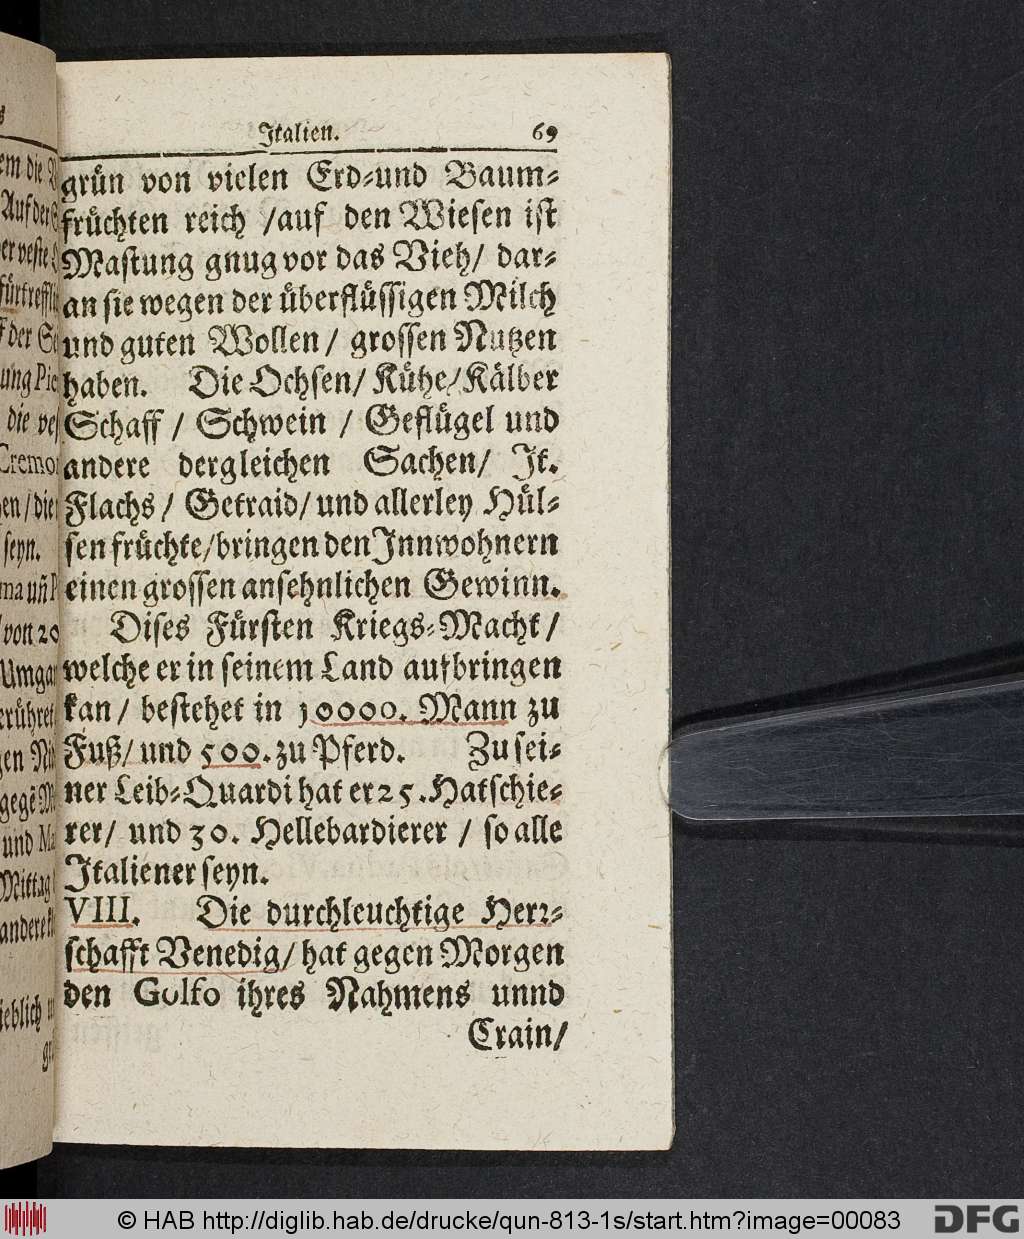 Italien. 69
grün von vielen Erd-und Baum-
früchten reich /auf den Wiesen ist
Mastung gnug vor das Vieh/ dar-
an sie wegen der überflüssigen Milch
und guten Wollen / grossen Nutzen
haben. Die Ochsen/ Kühe/Kälber
Schaff / Schwein / Geflügel und
andere dergleichen Sachen/ It.
Flachs / Getraid/ und allerley Hül-
sen früchte/bringen den Innwohnern
einen grossen ansehnlichen Gewinn.
Dises Fürsten Kriegs-Macht /
welche er in seinem Land aufbringen
kan / bestehet in 10000. Mann zu
Fuß/ und 500. zu Pferd. Zu sei-
ner Leib-Quardi hat er 25. Hatschie-
rer/ und 30. Hellebardierer / so alle
Italiener seyn.
VIII. Die durchleuchtige Herr-
schafft Venedig/ hat gegen Morgen
den Golfo ihres Nahmens unnd
Crain/
© HAB http://diglib.hab.de/drucke/qun-813-1s/start.htm?image=00083
DFG